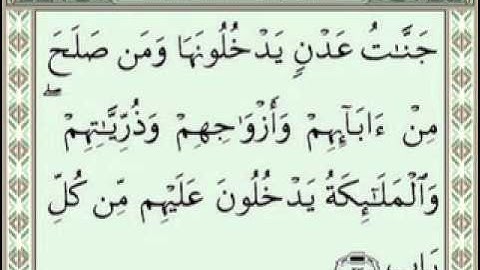 جَنَّٰتُ عَدْنٍ يَدْخُلُونَهَا وَمَن صَلَحَ
مِنْ ءَابَآئِهِمْ وَأَزْوَٰجِهِمْ وَذُرِّيَّٰتِهِمْ ۖ
وَٱلْمَلَٰٓئِكَةُ يَدْخُلُونَ عَلَيْهِم مِّن كُلِّ
بَابٍ